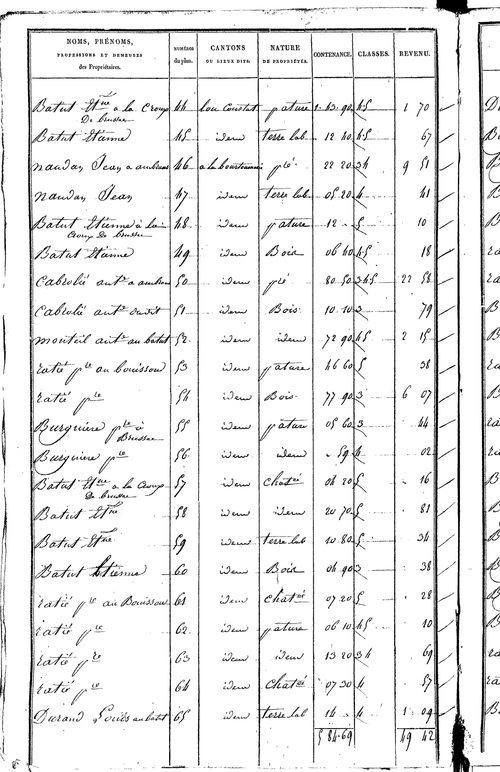 NOMS, PRÉNOMS, PROFESSIONS ET DEMEURES des Propriétaires. NUMÉROS du plan. CANTONS OU LIEUX DITS. NATURE DE PROPRIÉTÉS. CONTENANCE. CLASSES. REVENU.
Batut Etne a la Croux 44 lou Constat pature 1. 63. 90 45 1 70
De brussac
Batut Etienne 45 idem terre lab . 12 40 45 67
naudan Jean a 46 a la pré 22 20 34 9 51
naudan Jean 47 idem terre lab 05 20 4 41
Batut Etienne à la 48 idem pature 12 . 5 10
Croux De brussac
Batut Etienne 49 idem Bois 06 40 45 18
Cabrolié antne a 50 idem pré 80 50 345 22 58
Cabrolié antne dudit 51 idem Bois 10 10 3 79
monteil antne au batut 52 idem idem 72 90 45 2 15
ratié pre au bouissou 53 idem pature 46 60 5 38
ratié pre 54 idem Bois 77 90 3 6 07
Burguiere pre à 55 idem pature 05 60 3 44
Brussac
Burguiere pre 56 idem idem . 59 4 02
Batut Etne a la Croux 57 idem chatné 04 20 5 16
De brussac
Batut Etne 58 idem idem 20 70 5 81
Batut Etne 59 idem terre lab 10 80 5 34
Batut Etienne 60 idem Bois 04 90 3 38
ratié pre au Bouissou 61 idem chatné 07 20 5 28
ratié pre 62 idem pature 06 10 45 10
ratié pre 63 idem idem 13 20 34 69
ratié pre 64 idem chatné 07 30 4 57
Durand Louis au batut 65 idem terre lab 14 . 4 1 09
5 84. 69 49 42